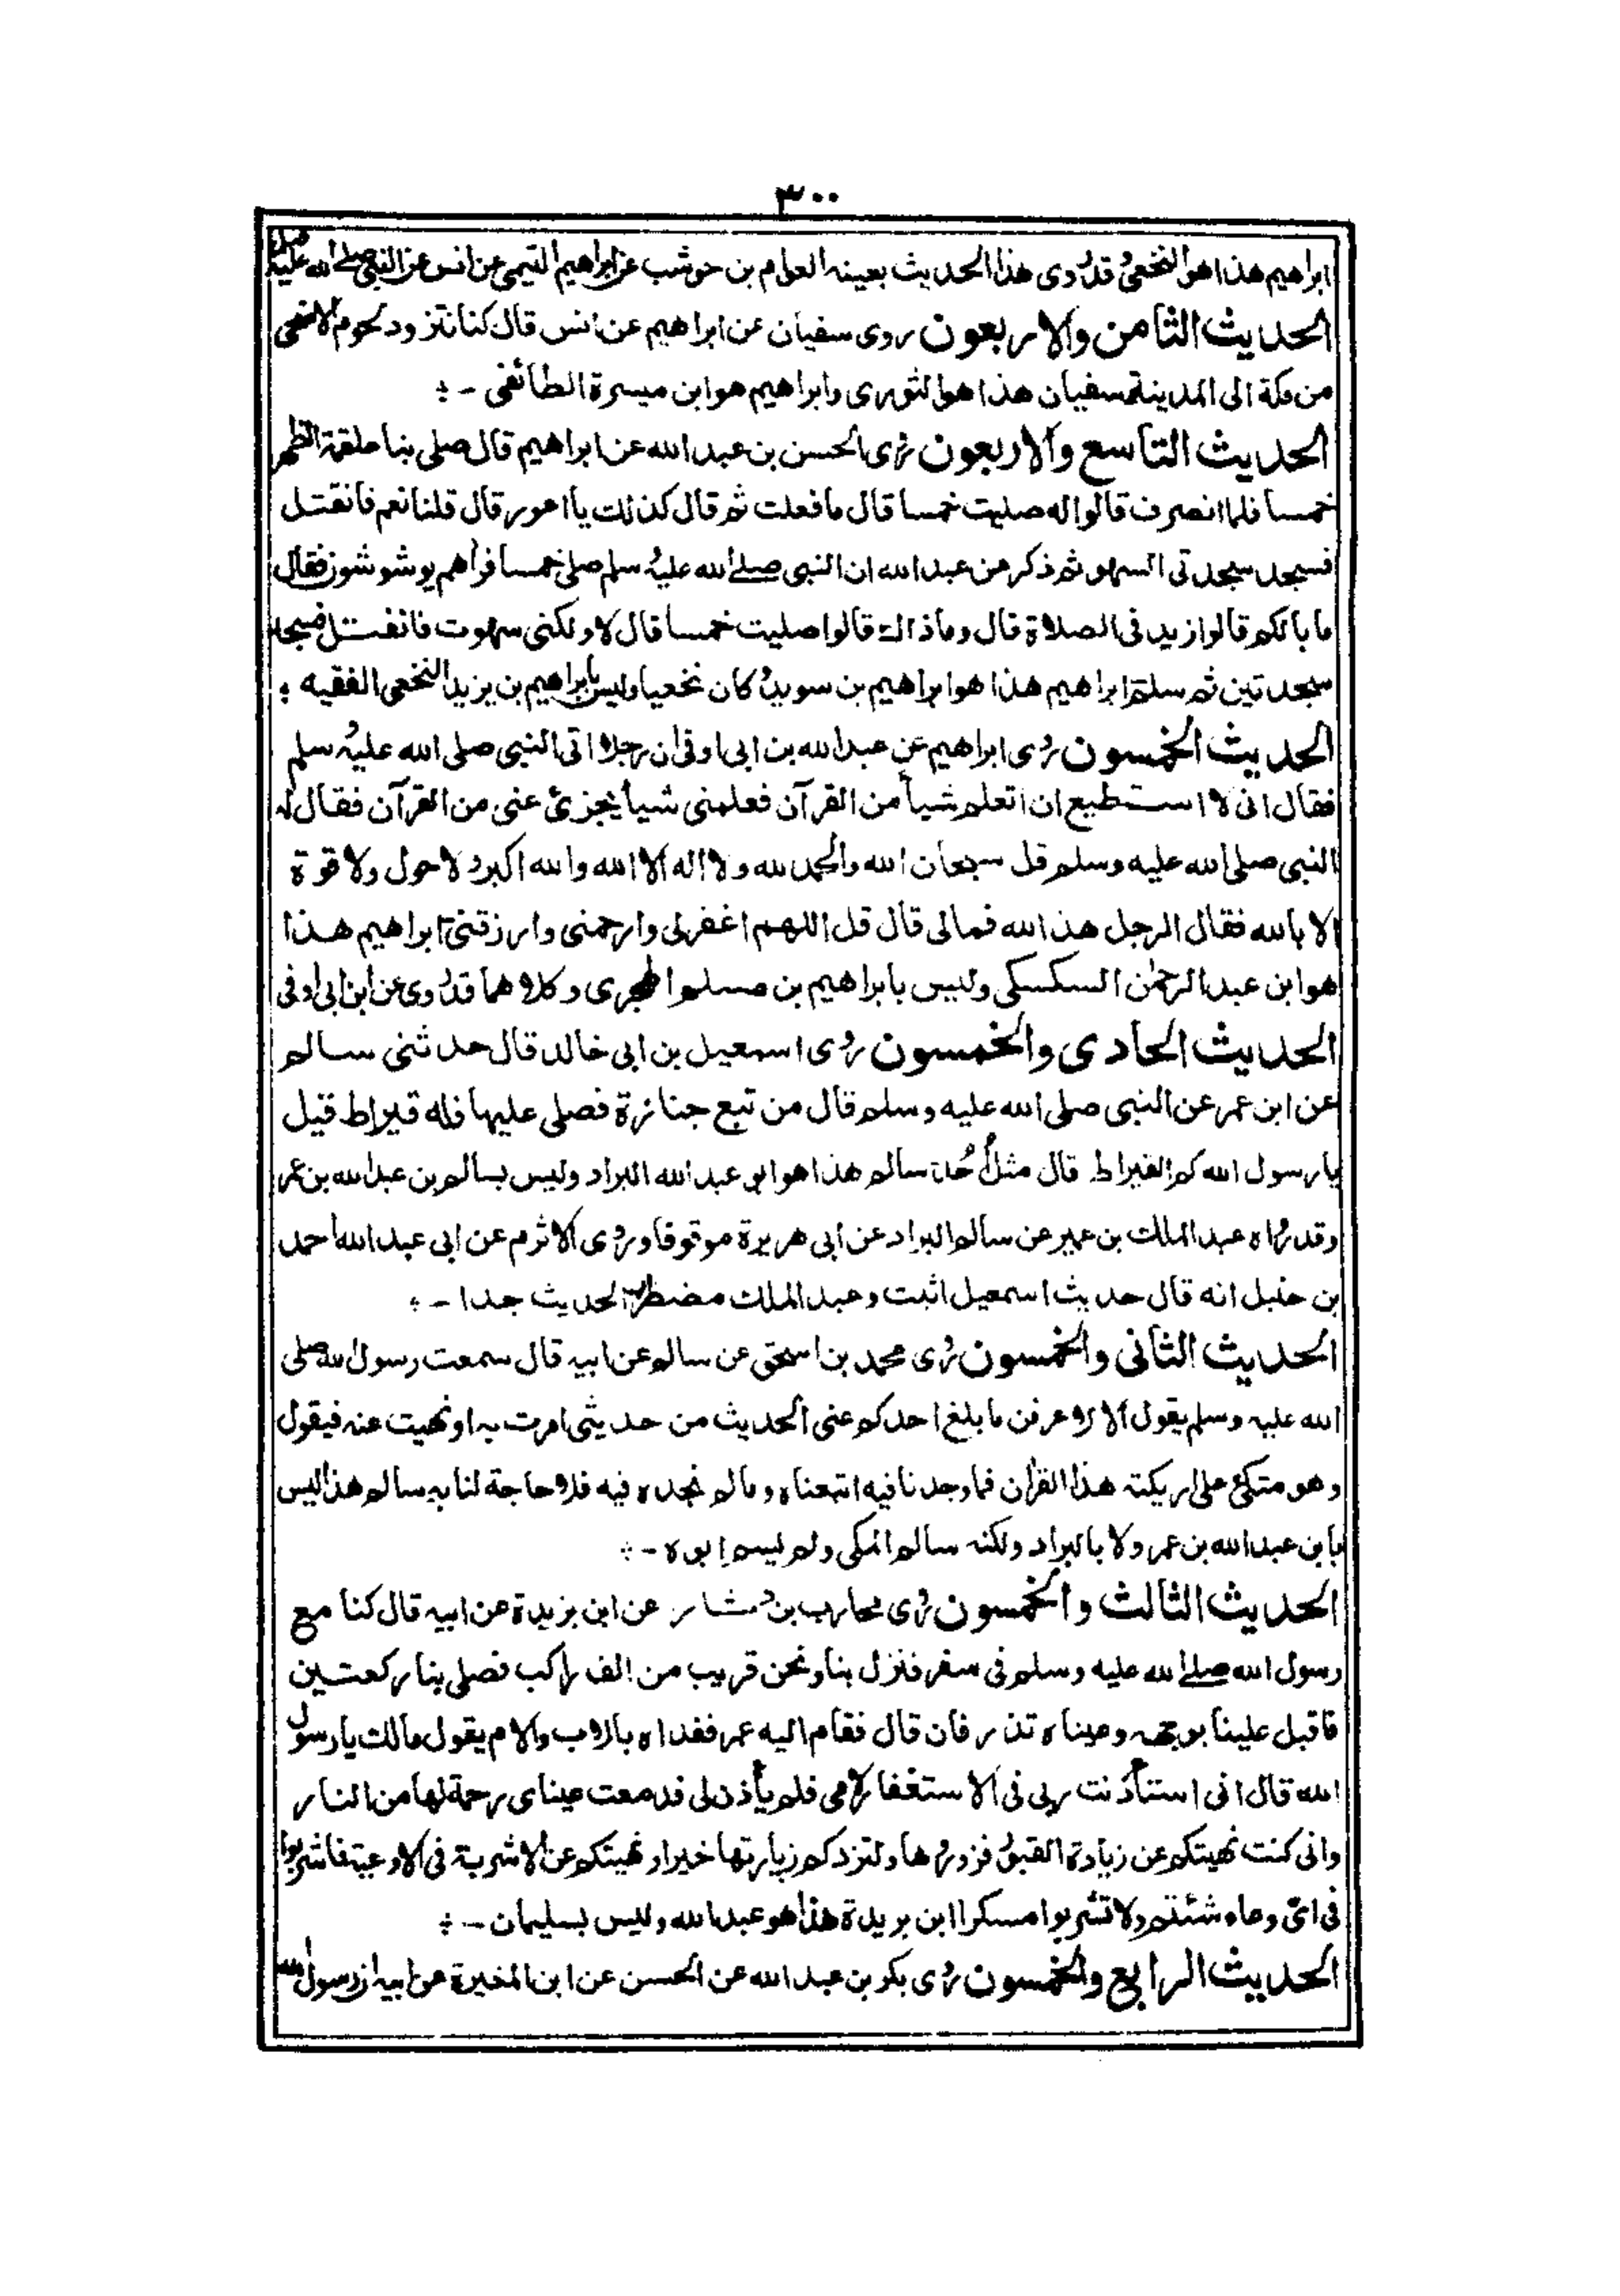 ٣٠٠
ابراهيم هذا هو النخعي وقد روى هذا الحديث بعينه العوام بن حوشب عن ابراهيم التيمي عن انس عن النبي صلى الله عليه وسلم
الحديث الثامن والاربعون روى سفيان عن ابراهيم عن انس قال كنا نتزود لحوم الاضحى
من مكة الى المدينة سفيان هذا هو الثوري وابراهيم هو ابن ميسرة الطائفي -
الحديث التاسع والاربعون روى الحسن بن عبد الله عن ابراهيم قال صلى بنا علقمة الظهر
خمسا فلما انصرف قالوا له صليت خمسا قال ما فعلت ثم قال كذلك يا اعور قال قلنا نعم فانفتل
فسجد سجدتى السهو ثم ذكر عن عبد الله ان النبي صلى الله عليه وسلم صلى خمسا فرأهم يوشوشون فقال
ما بالكم قالوا ازيد فى الصلاة قال وما ذاك قالوا صليت خمسا قال لا ولكنى سهوت فانفتل فسجد
سجدتين ثم سلم ابراهيم هذا هو ابراهيم بن سويد وكان نخعيا وليس بابراهيم بن يزيد النخعى الفقيه
الحديث الخمسون روى ابراهيم عن عبد الله بن ابى اوفى ان رجلا اتى النبى صلى الله عليه وسلم
فقال انى لا استطيع ان اتعلم شيأ من القرآن فعلمنى شيأ يجزئ عنى من القرآن فقال له
النبى صلى الله عليه وسلم قل سبحان الله والحمد لله ولا اله الا الله والله اكبر ولا حول ولا قوة
الا بالله فقال الرجل هذا لله فمالى قال قل اللهم اغفرلى وارحمنى وارزقنى ابراهيم هذا
هو ابن عبد الرحمٰن السكسكى وليس بابراهيم بن مسلم الهجرى وكلاهما قد روى عن ابن ابى اوفى
الحديث الحادى والخمسون روى اسمعيل بن ابى خالد قال حدثنى سالم
عن ابن عمر عن النبى صلى الله عليه وسلم قال من تبع جنازة فصلى عليها فله قيراط قيل
يا رسول الله كم القيراط قال مثل أحد سالم هذا هو ابو عبد الله البراد وليس بسالم بن عبد الله بن عمر
وقد رواه عبد الملك بن عمير عن سالم البراد عن ابى هريرة موقوفا وروى الاثرم عن ابى عبد الله احمد
بن حنبل انه قال حديث اسمعيل اثبت وعبد الملك مضطرب الحديث جدا -
الحديث الثانى والخمسون روى محمد بن اسحق عن سالم عن ابيه قال سمعت رسول الله صلى
الله عليه وسلم يقول الا لا اعرفن ما بلغ احدكم عنى الحديث من حديثى امرت به او نهيت عنه فيقول
وهو متكئ على اريكته هذا القرآن فما وجدنا فيه اتبعناه وما لم نجده فيه فلا حاجة لنا به سالم هذا ليس
بابن عبد الله بن عمر ولا بالبراد ولكنه سالم المكى ولم يسم ابوه -
الحديث الثالث والخمسون روى محارب بن دثار عن ابن بريدة عن ابيه قال كنا مع
رسول الله صلى الله عليه وسلم فى سفر فنزل بنا ونحن قريب من الف راكب فصلى بنا ركعتين
فاقبل علينا بوجهه وعيناه تذرفان قال فقام اليه عمر ففداه بالاب والام يقول مالك يا رسول
الله قال انى استأذنت ربى فى الاستغفار لامى فلم يأذن لى فدمعت عيناى رحمة لها من النار
وانى كنت نهيتكم عن زيارة القبور فزوروها ولتزدكم زيارتها خيرا ونهيتكم عن الاشربة فى الاوعية فاشربوا
فى اى وعاء شئتم ولا تشربوا مسكرا ابن بريدة هذا هو عبد الله وليس بسليمان -
الحديث الرابع والخمسون روى بكر بن عبد الله عن الحسن عن ابن المغيرة عن ابيه ان رسول الله